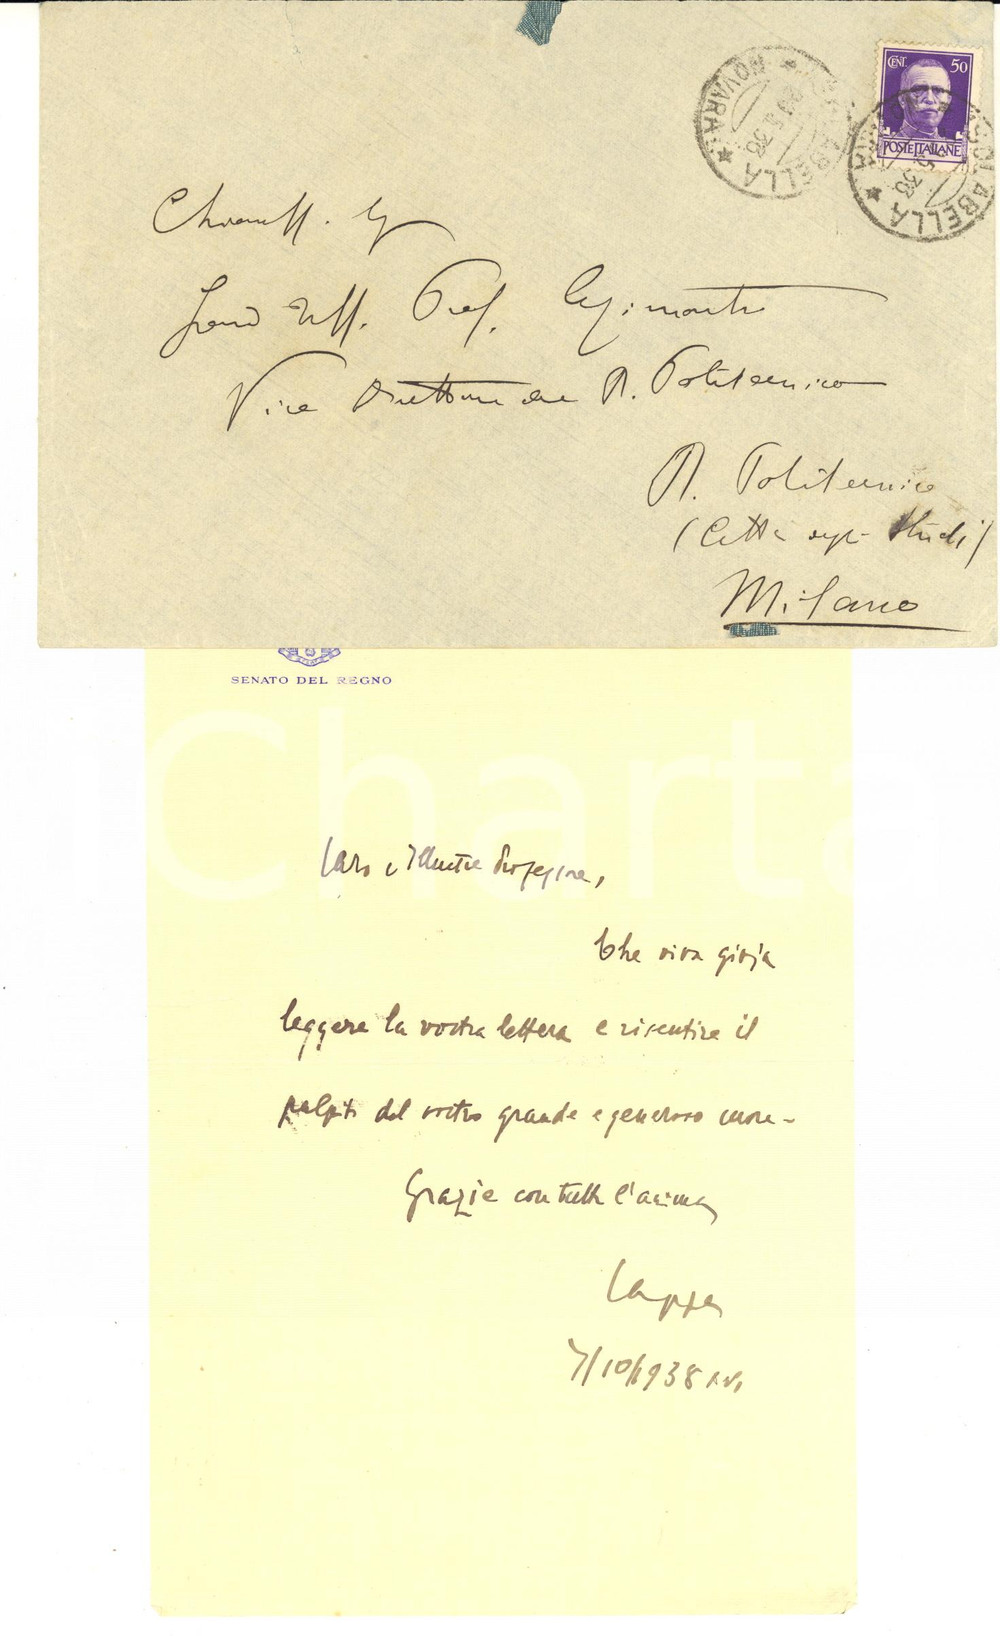 Chiariss. Sig
Grand Uff. Prof.
Vice Direttore del R. Politecnico
R. Politecnico
(Città degli Studi)
Milano
CENT. 50
POSTE ITALIANE
ISOLA BELLA
NOVARA
SENATO DEL REGNO
Caro e Illustre Professore,
Che viva gioja
leggere la vostra lettera e risentire il
palpiti del vostro grande e generoso cuore-
Grazie con tutta l'anima
7/10/1938 XVI
iCharta